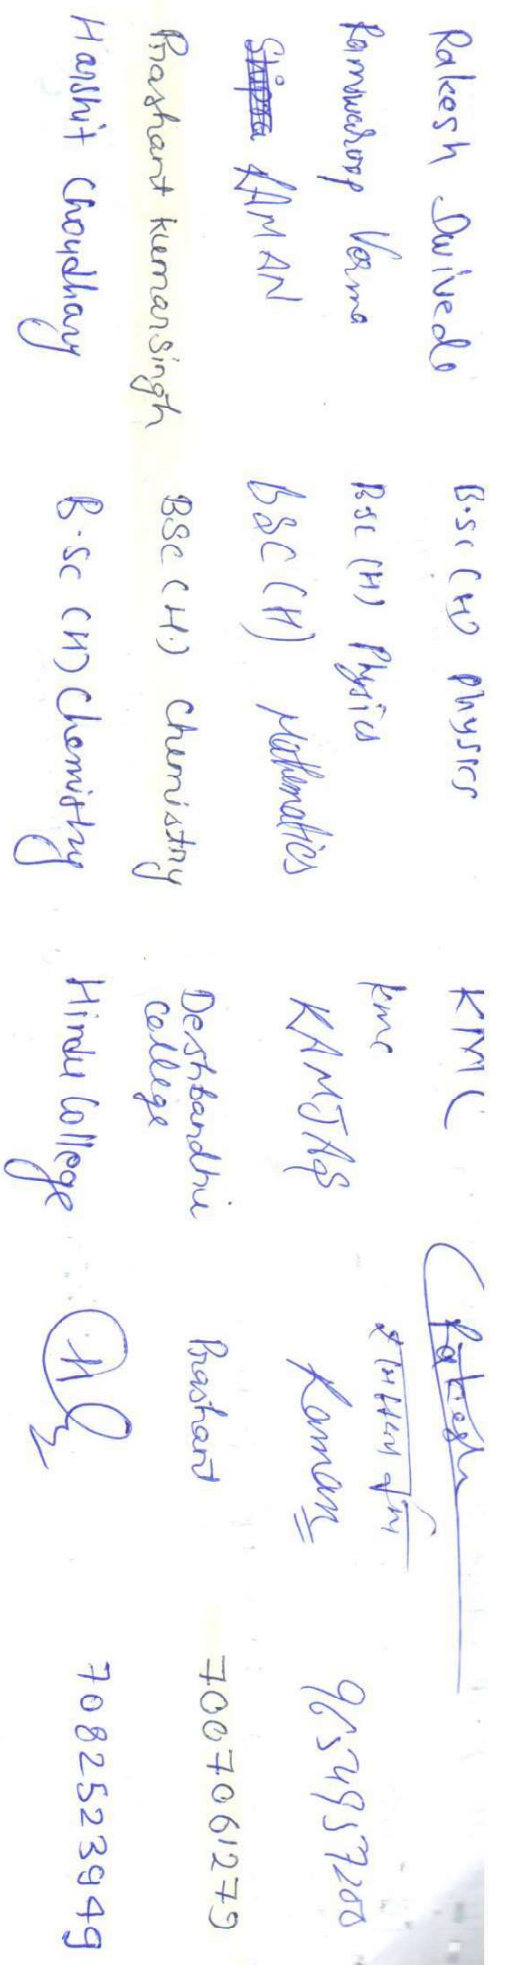 Rakesh Dwivedi B.Sc (H) Physics KMC Rakesh
Ramswaroop Verma B.Sc (H) Physics kmc रामस्वरूप वर्मा
RAMAN BSC (H) Mathematics RAMJAS Raman 9654957200
Prashant kumar Singh BSc (H.) Chemistry Deshbandhu College Prashant 7007061279
Harshit Choudhary B.Sc (H) Chemistry Hindu College 7082523949